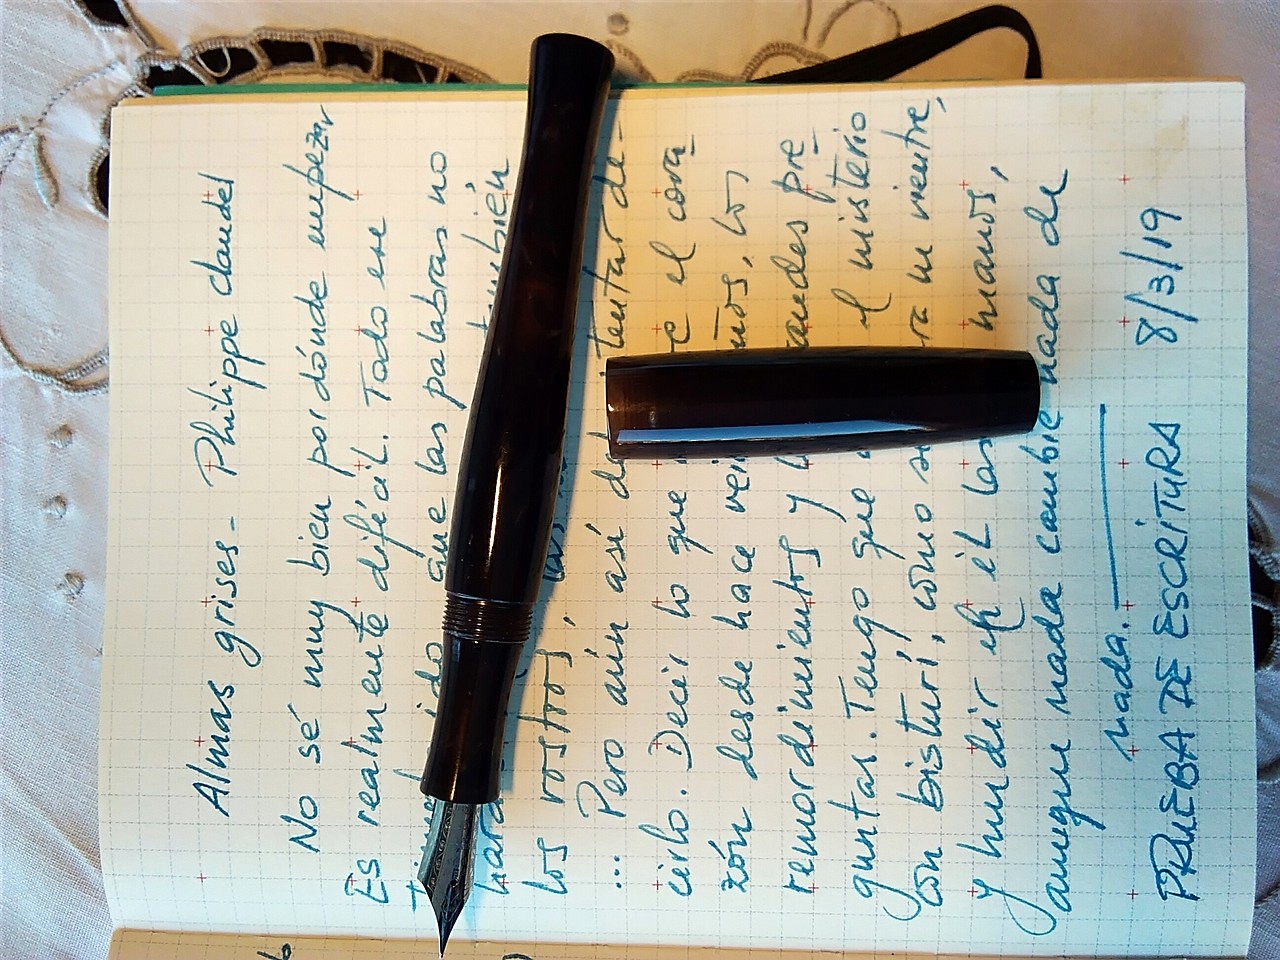 Almas grises - Philippe claudel
No sé muy bien por dónde empezar
Es realmente difícil. Todo ese
que las palabras no
también
los rostros, las
... Pero aún así de tentar de-
cirlo. Decir lo que el cora
zón desde hace años, los
remordimientos y grandes pre
guntas. Tengo que el misterio
con bisturí, como un vientre,
y hundir en él las manos,
aunque nada cambie nada de
nada.
PRUEBA DE ESCRITURA 8/3/19